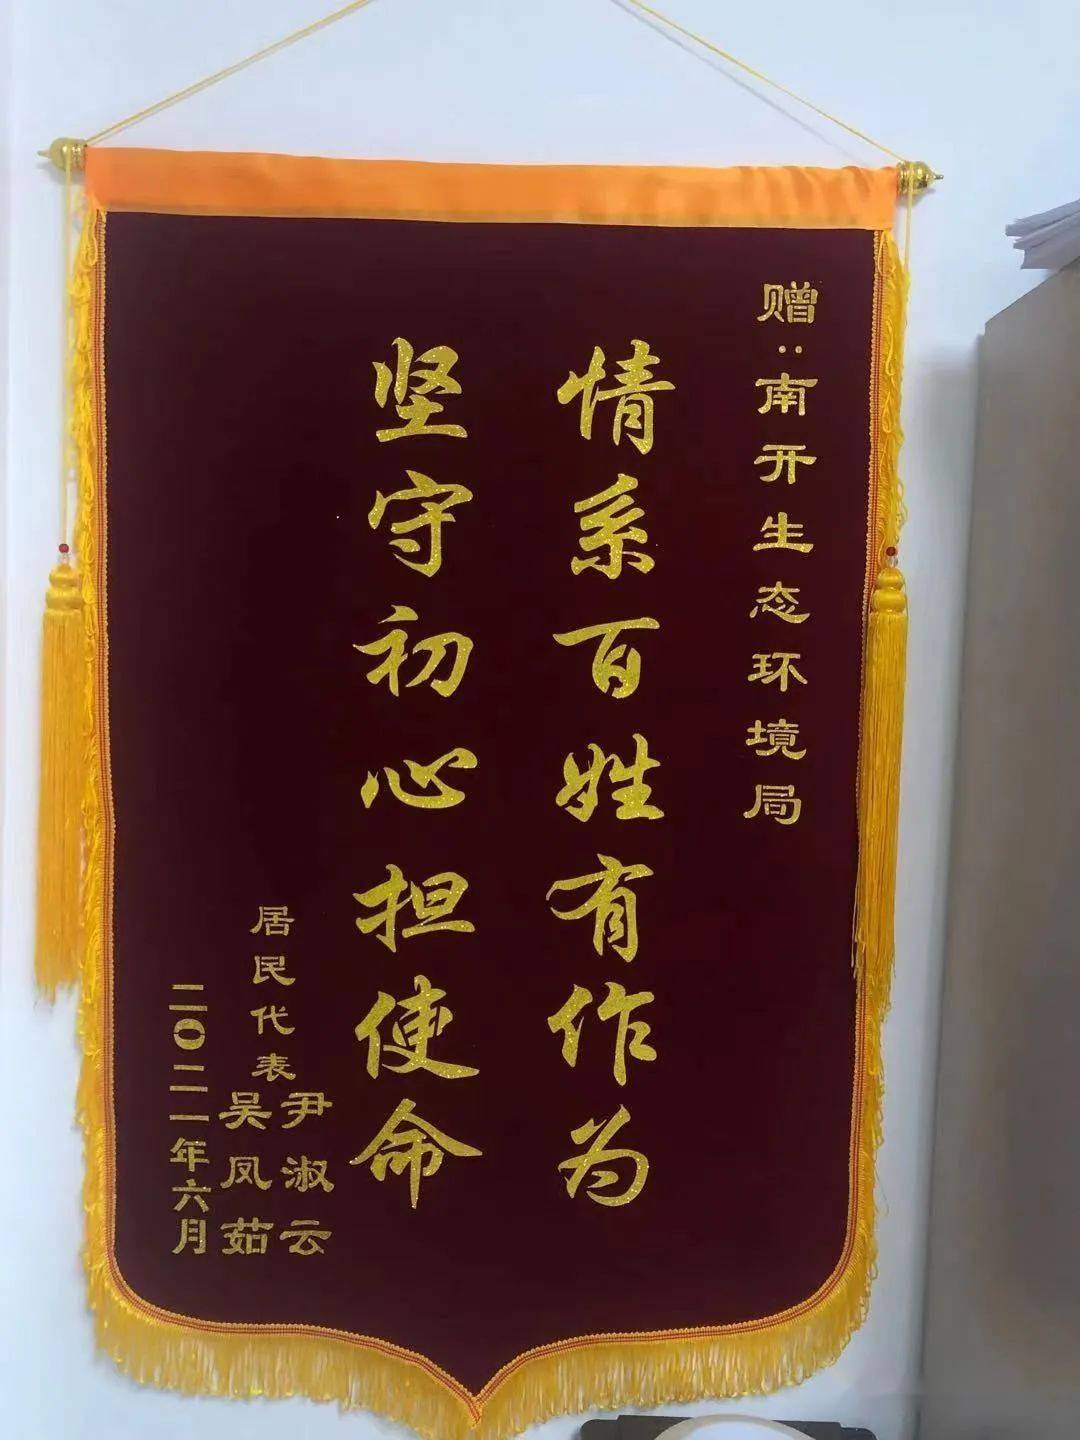 赠:南开生态环境局
情系百姓有作为
坚守初心担使命
居民代表
尹淑云
吴凤茹
二〇二一年六月